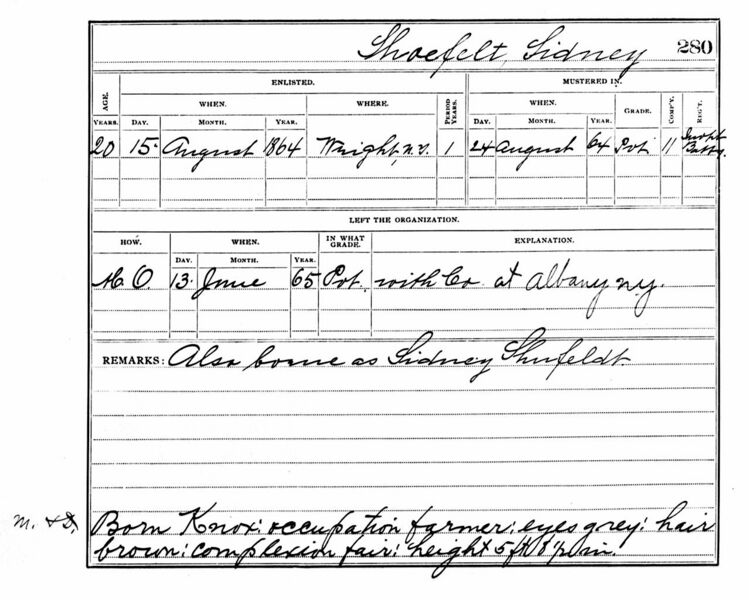 Shoefelt, Sidney 280
ENLISTED. MUSTERED IN.
AGE. WHEN. WHERE. PERIOD YEARS. WHEN. GRADE. COMP'Y. REG'T.
YEARS. DAY. MONTH. YEAR. DAY. MONTH. YEAR.
20 15 August 1864 Wright, N.Y. 1 24 August 64 Pvt 11 Batty.
LEFT THE ORGANIZATION.
HOW. WHEN. IN WHAT GRADE. EXPLANATION.
DAY. MONTH. YEAR.
M. O. 13 June 65 Pvt. with Co. at Albany N.Y.
REMARKS: Also borne as Sidney Shufeldt.
M. & D. Born Knox: occupation farmer: eyes grey: hair
brown: complexion fair: height 5 ft 8 1/2 in.